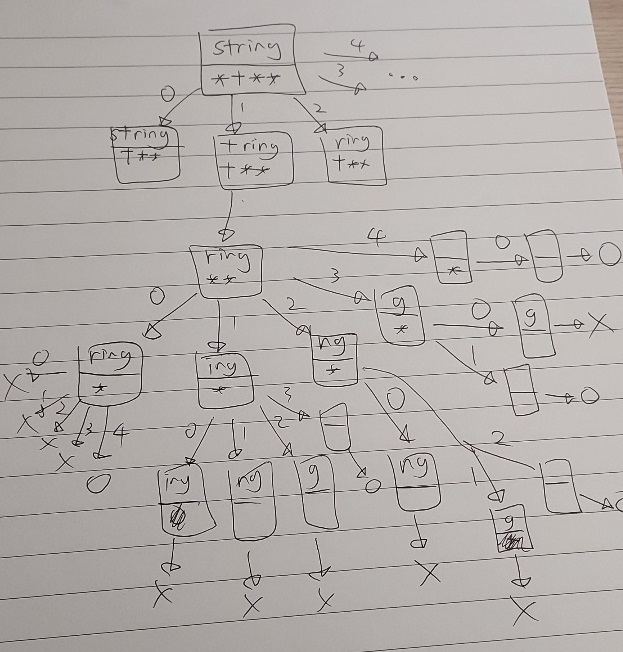 string 4
*+** 3 ...
0 1 2
string tring ring
+** +** +**
ring 4 0 O
** * 
3 g 0 g X
0 1 2 * 
ring ing ng 1 O
* * *
0 X
1 X 2 X 3 X 4 O
0 1 2 3 0 1 2
ing ng g O ng g O
X X X X X